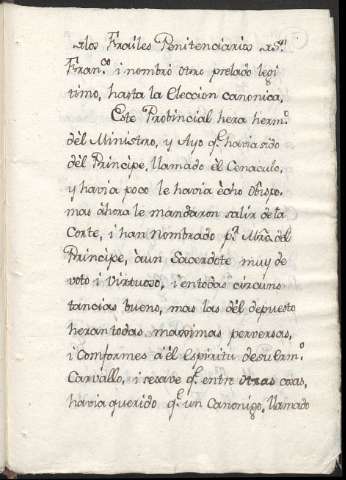 alos Frailes Penitenciarios aSn.
Franco. i nombró otro prelado legi
timo, hasta la Eleccion canonica.
Este Probincial hera hermo.
dèl Ministro, y Ayo qe. havia sido
dèl Principe, llamado èl Cenaculo,
y havia poco le havia ècho Obispo,
mas àhora le mandaron salir dela
Corte, i han nombrado pr. Mro. dèl
Principe, àun Sacerdote muy de
voto i Virtuoso, i entodas circuns
tancias bueno, mas las dèl depuesto
heran todas maximas perversas,
i Comformes àèl Espiritu desu Ermo.
Carvallo, i resave qe. entre otras cosas,
havia querido qe. un Canonigo, llamado